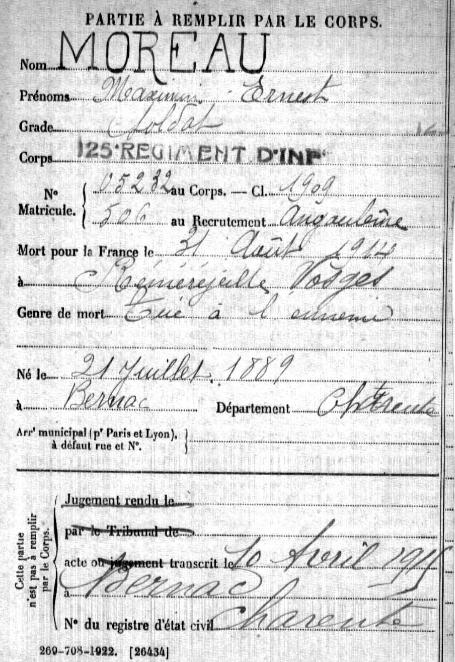 PARTIE À REMPLIR PAR LE CORPS.
Nom MOREAU
Prénoms Maximin Ernest
Grade Soldat
Corps 125e REGIMENT D'INFie
No Matricule. 05232 au Corps. — Cl. 1909
506 au Recrutement Angoulême
Mort pour la France le 21 Août 1914
à Réméréville Vosges
Genre de mort Tué à l'ennemi
Né le 21 Juillet 1889
à Bernac Département Charente
Arrt municipal (pr Paris et Lyon), à défaut rue et No.
Cette partie n'est pas à remplir par le Corps.
Jugement rendu le
par le Tribunal de
acte ou jugement transcrit le 10 Avril 1915
à Bernac
No du registre d'état civil Charente
269-708-1922. [26434]